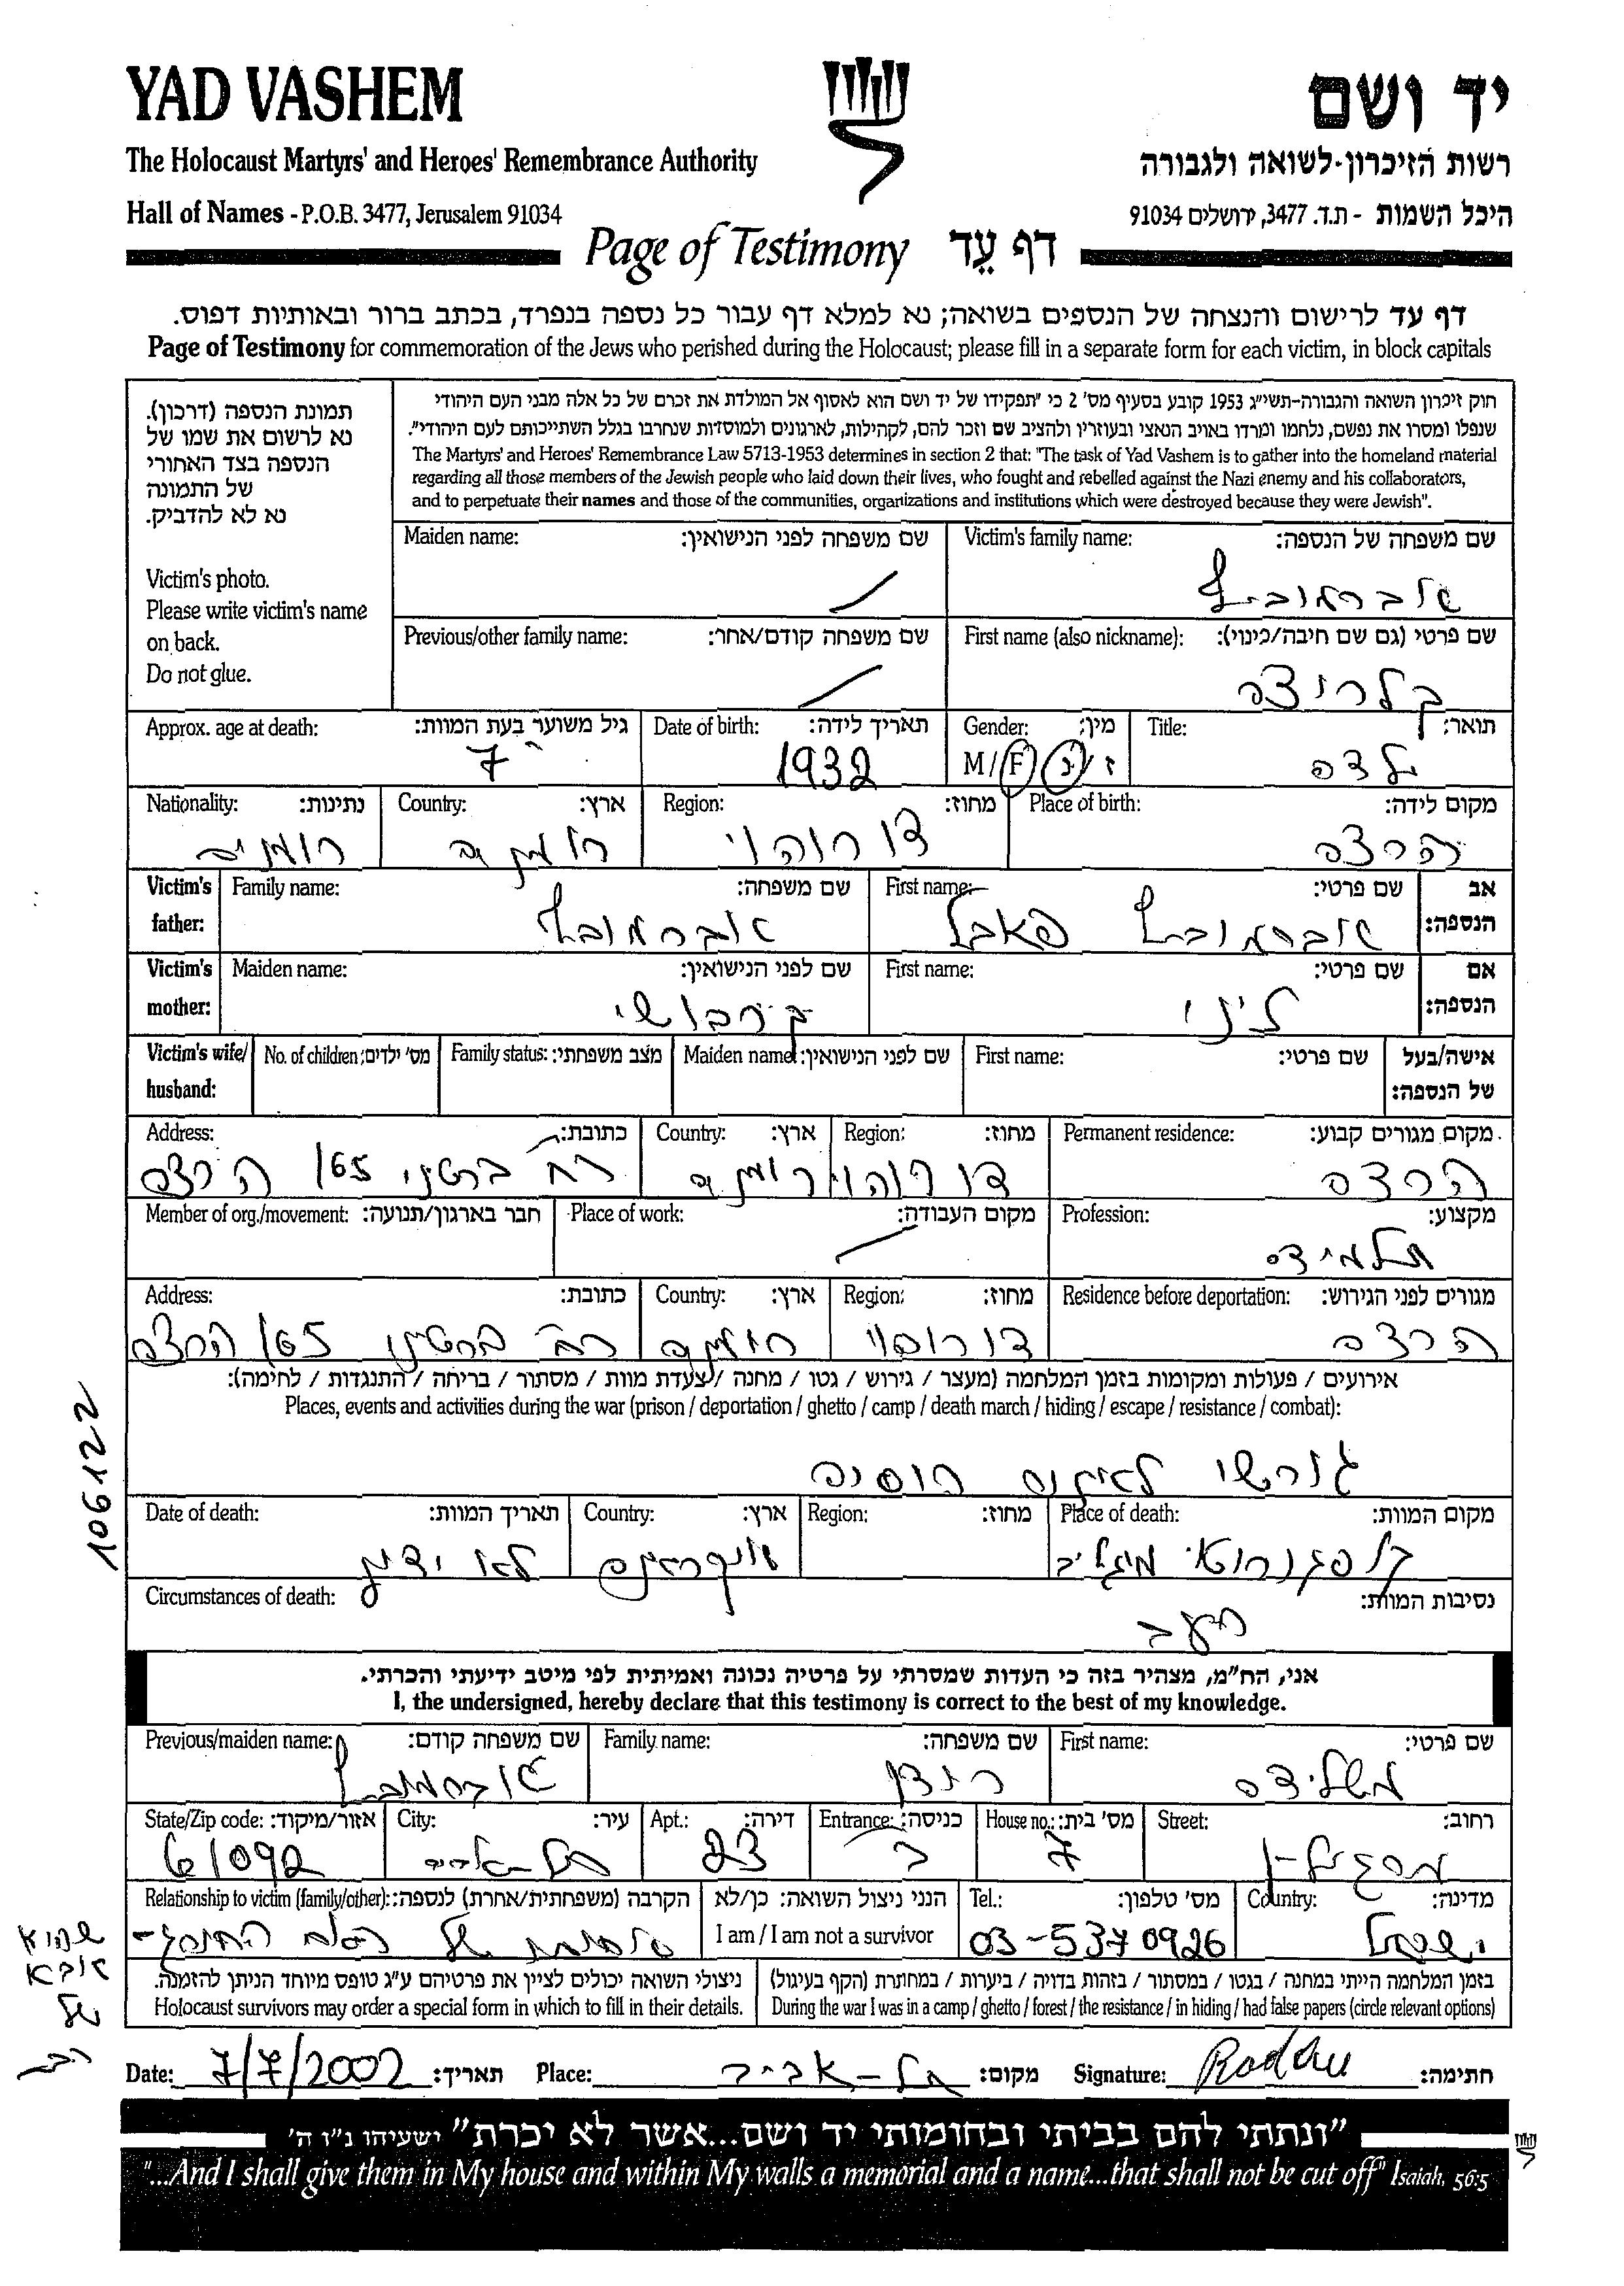 YAD VASHEM
יד ושם
The Holocaust Martyrs' and Heroes' Remembrance Authority
רשות הזיכרון-לשואה ולגבורה
Hall of Names - P.O.B. 3477, Jerusalem 91034
היכל השמות - ת.ד. 3477, ירושלים 91034
Page of Testimony דף עֵד
דף עד לרישום והנצחה של הנספים בשואה; נא למלא דף עבור כל נספה בנפרד, בכתב ברור ובאותיות דפוס.
Page of Testimony for commemoration of the Jews who perished during the Holocaust; please fill in a separate form for each victim, in block capitals
תמונת הנספה (דרכון).
נא לרשום את שמו של
הנספה בצד האחורי
של התמונה
נא לא להדביק.
Victim's photo.
Please write victim's name
on back.
Do not glue.
חוק זיכרון השואה והגבורה-תשי"ג 1953 קובע בסעיף מס' 2 כי "תפקידו של יד ושם הוא לאסוף אל המולדת את זכרם של כל אלה מבני העם היהודי
שנפלו ומסרו את נפשם, נלחמו ומרדו באויב הנאצי ובעוזריו ולהציב שם וזכר להם, לקהילות, לארגונים ולמוסדות שנחרבו בגלל השתייכותם לעם היהודי".
The Martyrs' and Heroes' Remembrance Law 5713-1953 determines in section 2 that: "The task of Yad Vashem is to gather into the homeland material
regarding all those members of the Jewish people who laid down their lives, who fought and rebelled against the Nazi enemy and his collaborators,
and to perpetuate their names and those of the communities, organizations and institutions which were destroyed because they were Jewish".
Victim's family name: שם משפחה של הנספה:
אברמוביץ
Maiden name: שם משפחה לפני הנישואין:
First name (also nickname): שם פרטי (גם שם חיבה/כינוי):
קלריצה
Previous/other family name: שם משפחה קודם/אחר:
Title: תואר:
ילדה
Gender: מין:
M/F ז/נ
Date of birth: תאריך לידה:
1932
Approx. age at death: גיל משוער בעת המוות:
7
Place of birth: מקום לידה:
הרצה
Region: מחוז:
דורוהוי
Country: ארץ:
רומניה
Nationality: נתינות:
רומניה
Victim's father: אב הנספה:
First name: שם פרטי:
אברמוביץ פאבל
Family name: שם משפחה:
אברמוביץ
Victim's mother: אם הנספה:
First name: שם פרטי:
ליני
Maiden name: שם לפני הנישואין:
Victim's wife/husband: אישה/בעל של הנספה:
First name: שם פרטי:
Maiden name: שם לפני הנישואין:
Family status: מצב משפחתי:
No. of children: מס' ילדים:
Permanent residence: מקום מגורים קבוע:
הרצה
Region: מחוז:
דורוהוי
Country: ארץ:
רומניה
Address: כתובת:
רח' ברטני 165 הרצה
Profession: מקצוע:
תלמידה
Place of work: מקום העבודה:
Member of org./movement: חבר בארגון/תנועה:
Residence before deportation: מגורים לפני הגירוש:
הרצה
Region: מחוז:
דורוהוי
Country: ארץ:
רומניה
Address: כתובת:
רח' ברטני 165 הרצה
אירועים / פעולות ומקומות בזמן המלחמה (מעצר / גירוש / גטו / מחנה / צעדת מוות / מסתור / בריחה / התנגדות / לחימה):
Places, events and activities during the war (prison / deportation / ghetto / camp / death march / hiding / escape / resistance / combat):
גורשו
Place of death: מקום המוות:
Region: מחוז:
Country: ארץ:
אוקראינה
Date of death: תאריך המוות:
לא ידוע
Circumstances of death: נסיבות המוות:
רעב
אני, הח"מ, מצהיר בזה כי העדות שמסרתי על פרטיה נכונה ואמיתית לפי מיטב ידיעתי והכרתי.
I, the undersigned, hereby declare that this testimony is correct to the best of my knowledge.
First name: שם פרטי:
Family name: שם משפחה:
Previous/maiden name: שם משפחה קודם:
אברמוביץ
Street: רחוב:
House no.: מס' בית:
7
Entrance: כניסה:
ב
Apt.: דירה:
23
City: עיר:
תל-אביב
State/Zip code: אזור/מיקוד:
61092
Country: מדינה:
ישראל
Tel.: מס' טלפון:
03-5370926
הנני ניצול השואה: כן/לא
I am / I am not a survivor
Relationship to victim (family/other): הקרבה (משפחתית/אחרת) לנספה:
שהוא
אבא
של
בזמן המלחמה הייתי במחנה / בגטו / במסתור / בזהות בדויה / ביערות / במחתרת (הקף בעיגול)
During the war I was in a camp / ghetto / forest / the resistance / in hiding / had false papers (circle relevant options)
ניצולי השואה יכולים לציין את פרטיהם ע"ג טופס מיוחד הניתן להזמנה.
Holocaust survivors may order a special form in which to fill in their details.
Date: 7/7/2002 תאריך: Place: תל-אביב מקום: Signature: חתימה:
106122
"ונתתי להם בביתי ובחומותי יד ושם...אשר לא יכרת" ישעיהו נ"ו ה'
"...And I shall give them in My house and within My walls a memorial and a name...that shall not be cut off" Isaiah, 56:5